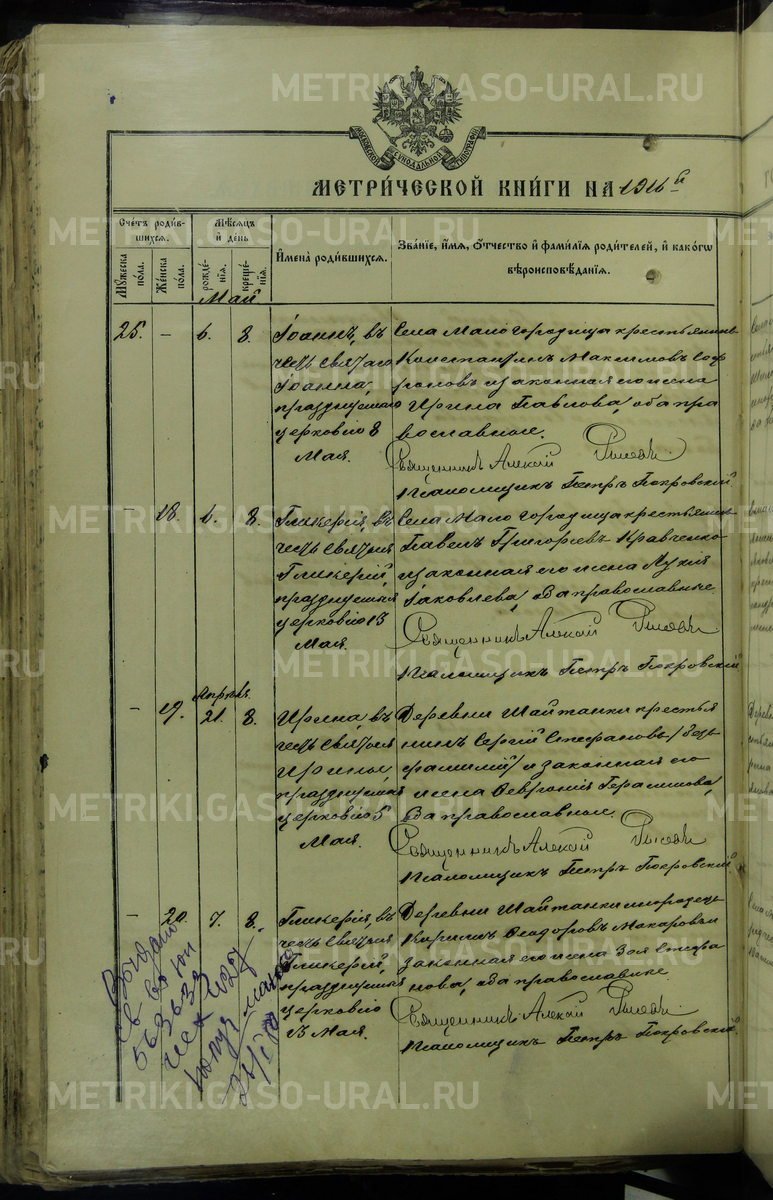 МОСКОВСКОЙ СѴНОДАЛЬНОЙ ТИПОГРАФІИ
МЕТРИ́ЧЕСКОЙ КНИ́ГИ НА 1916 й
Сче́тъ роди́вшихся.
Му́жеска по́ла.
Же́нска по́ла.
Мѣ́сяцъ и҆ де́нь
рожде́нія.
креще́нія.
И҆мена̀ роди́вшихся.
Зва́ніе, и҆́мя, ѻ҆́тчество и҆ фами́лія роди́телей, и҆ како́гѡ
вѣроисповѣ́данія.
Май
25. — 6. 8.
Іоаннъ, въ
честь святаго
Іоанна,
празднуемаго
церковію 8
Мая.
Села Мало городища крестьянинъ
Константинъ Максимовъ Соф
роновъ и законная его жена
Ирина Павлова, оба пра
вославные.
Священникъ Алексій
Псаломщикъ Петръ Покровскій.
— 18. 6. 8.
Гликерія, въ
честь святыя
Гликеріи,
празднуемыя
церковію 13
Мая.
Села Мало городища крестьянинъ
Павелъ Григорьевъ Кравченко
и законная его жена Лукія
Іаковлева, оба православные
Священникъ Алексій
Псаломщикъ Петръ Покровскій
Апрѣля.
— 19. 21. 8.
Ирина, въ
честь святыя
Ирины,
празднуемыя
церковію 5
Мая.
Деревни Шайтанки крестья
нинъ Сергій Стефановъ /безъ
фамиліи/ и законная его
жена Евгронія Герасимова,
оба православные.
Священникъ Алексій
Псаломщикъ Петръ Покровскій
— 20. 7. 8.
Гликерія, въ
честь святыя
Гликеріи,
празднуемыя
церковію
13 Мая.
Деревни Шайтанки инородецъ
Кириллъ Ѳеодоровъ Макаровъ и
законная его жена Зоя Стефа
нова, оба православные.
Священникъ Алексій
Псаломщикъ Петръ Покровскій.
Выдано
св во юп
563633
METRIKI.GASO-URAL.RU